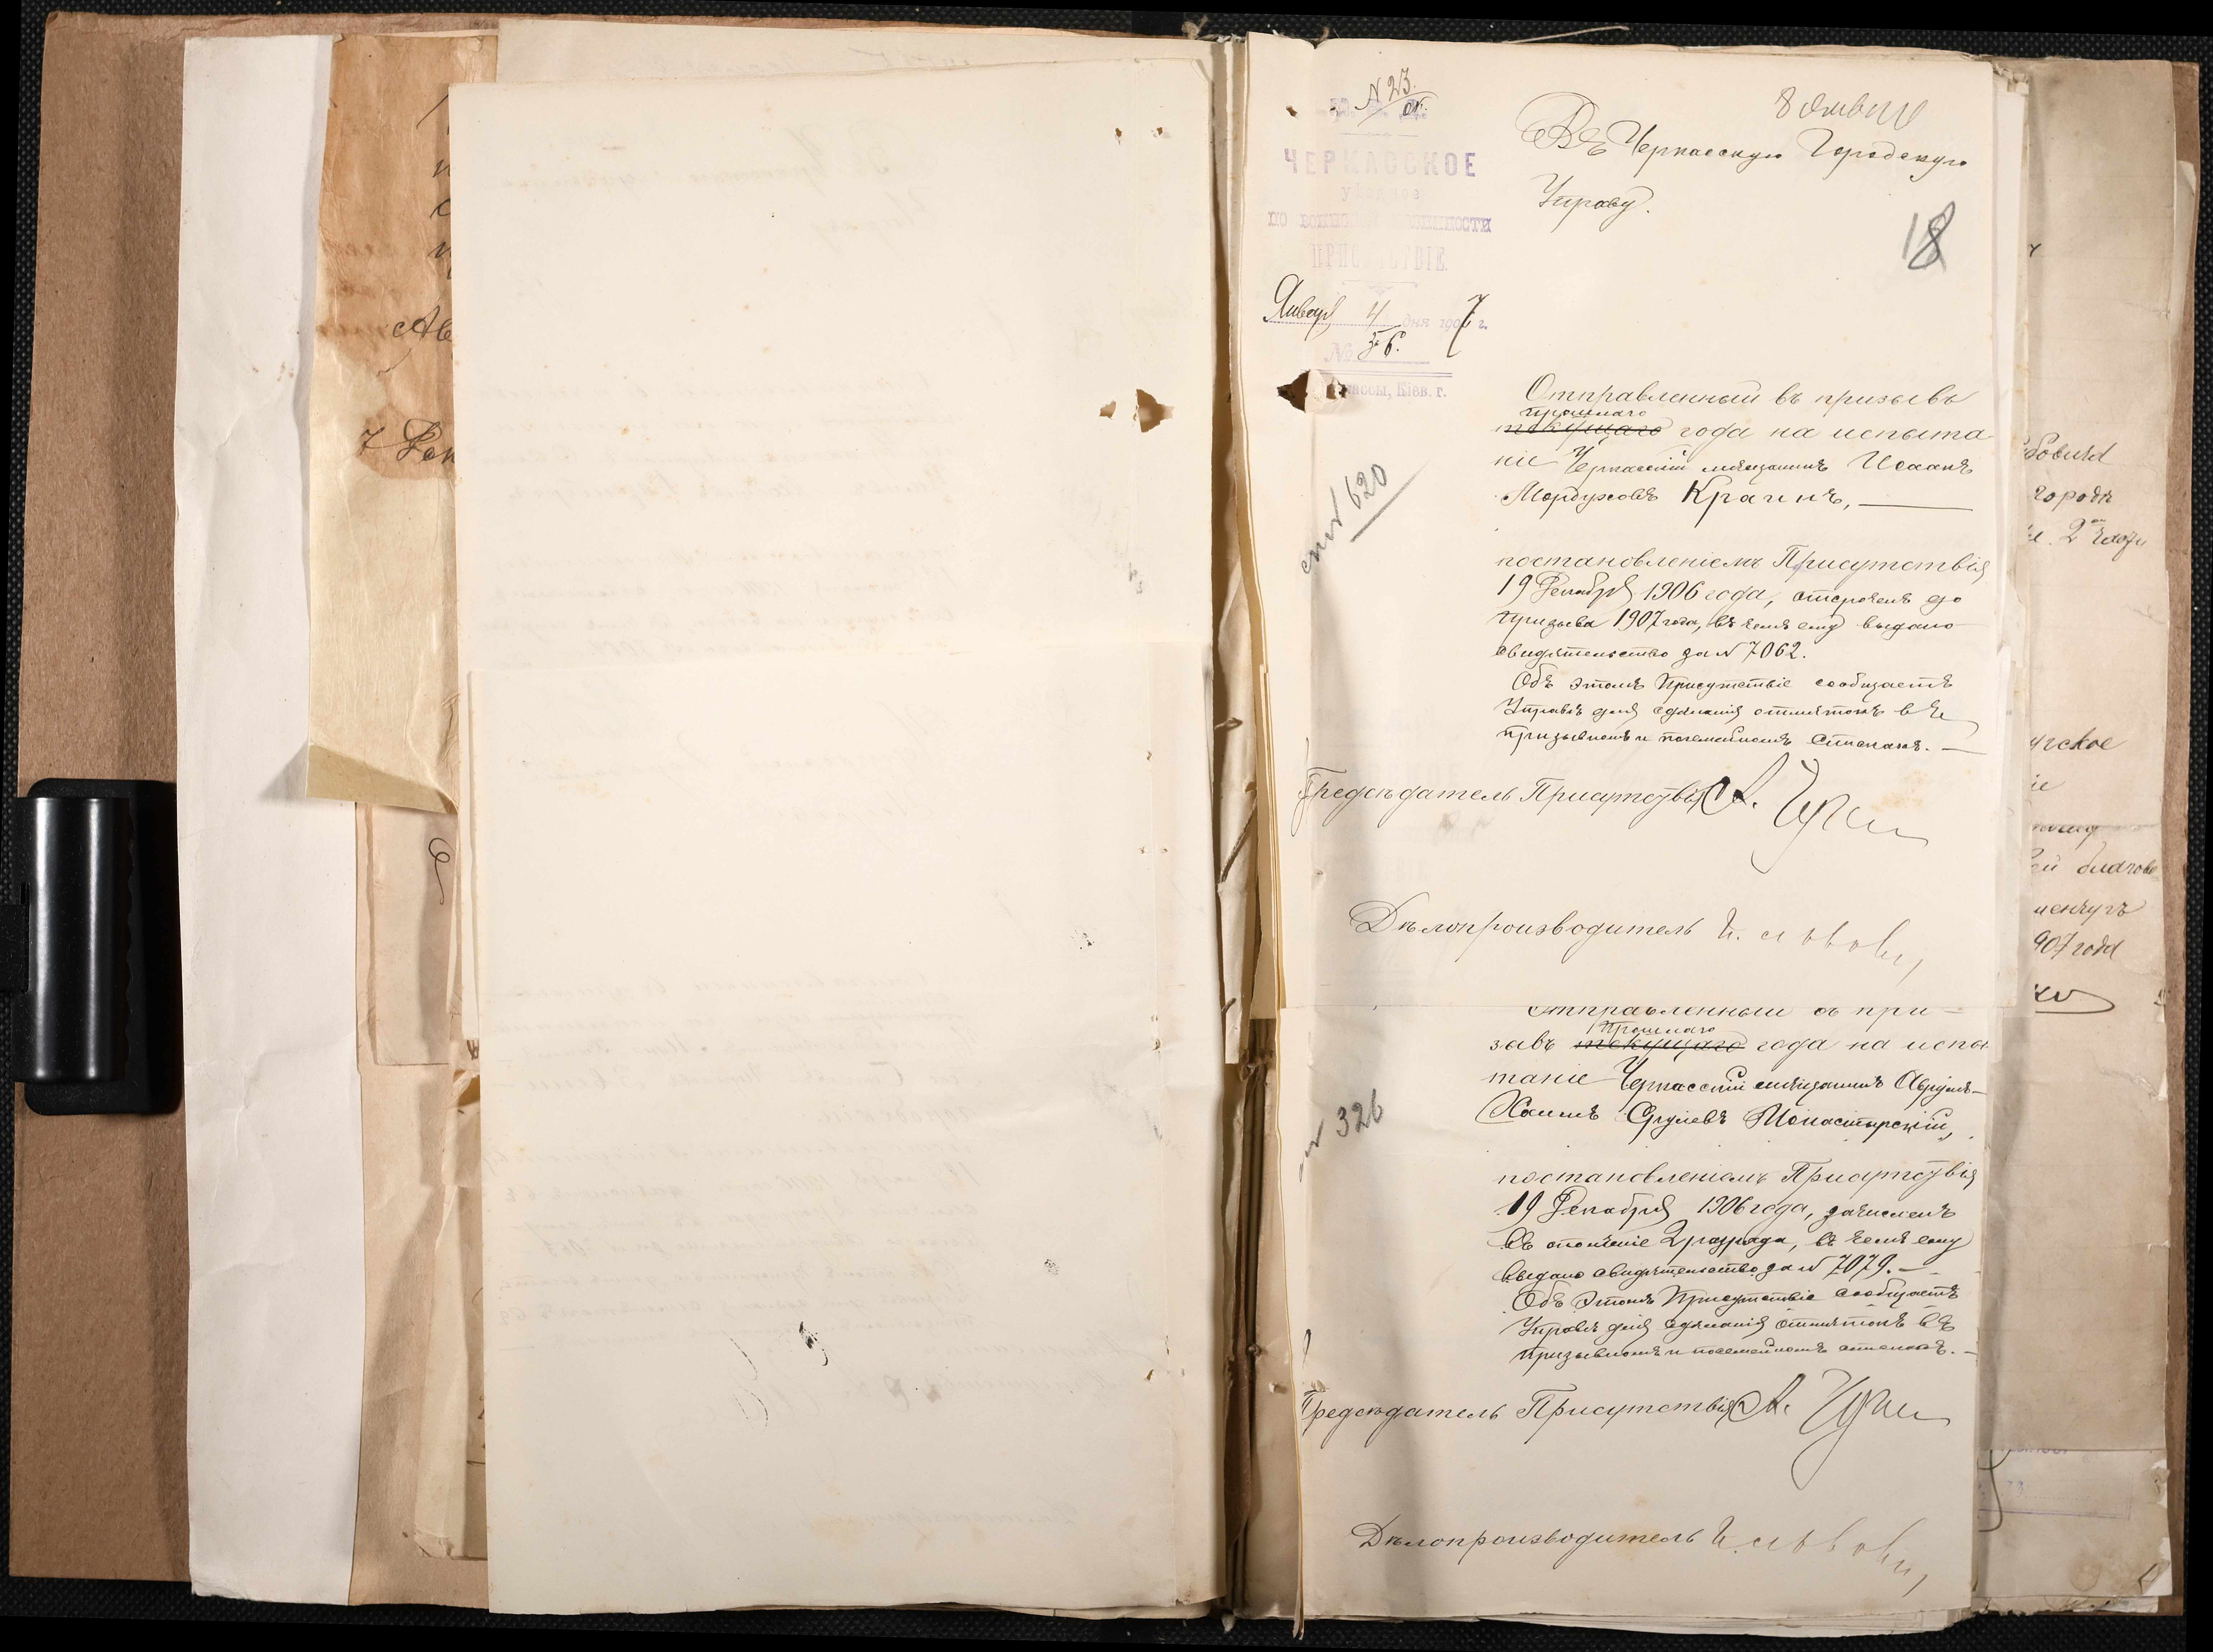 N 23.
8 Января
Въ Черкасскую Городскую
Управу.
18
ЧЕРКАССКОЕ
уѣздное
ПО ВОИНСКОЙ ПОВИННОСТИ
ПРИСУТСТВІЕ.
Января 4 дня 1907 г.
№ 56.
Черкассы, Кіев. г.
Отправленный въ призывъ
прошлаго
текущаго года на испыта
ніе Черкасскій мѣщанинъ Исаакъ
Мордуховъ Крагинъ,
620
постановленіемъ Присутствія
19 Декабря 1906 года, отсроченъ до
призыва 1907 года, въ чемъ ему выдано
свидѣтельство за N 7062.
Объ этомъ Присутствіе сообщаетъ
Управѣ для сдѣланія отмѣтокъ въ
призывномъ и посемейномъ спискахъ.
Предсѣдатель Присутствія
Дѣлопроизводитель
Отправленный въ при-
прошлаго
зывъ текущаго года на испы
таніе Черкасскій мѣщанинъ Аврумъ-
Хаимъ Сруліевъ Монастырскій,
326
постановленіемъ Присутствія
19 Декабря 1906 года, зачисленъ
въ ополченіе 2 разряда, въ чемъ ему
выдано свидѣтельство за N 7079.
Объ этомъ Присутствіе сообщаетъ
Управѣ для сдѣланія отмѣтокъ въ
призывномъ и посемейномъ спискахъ.
Предсѣдатель Присутствія
Дѣлопроизводитель
городѣ
907 года